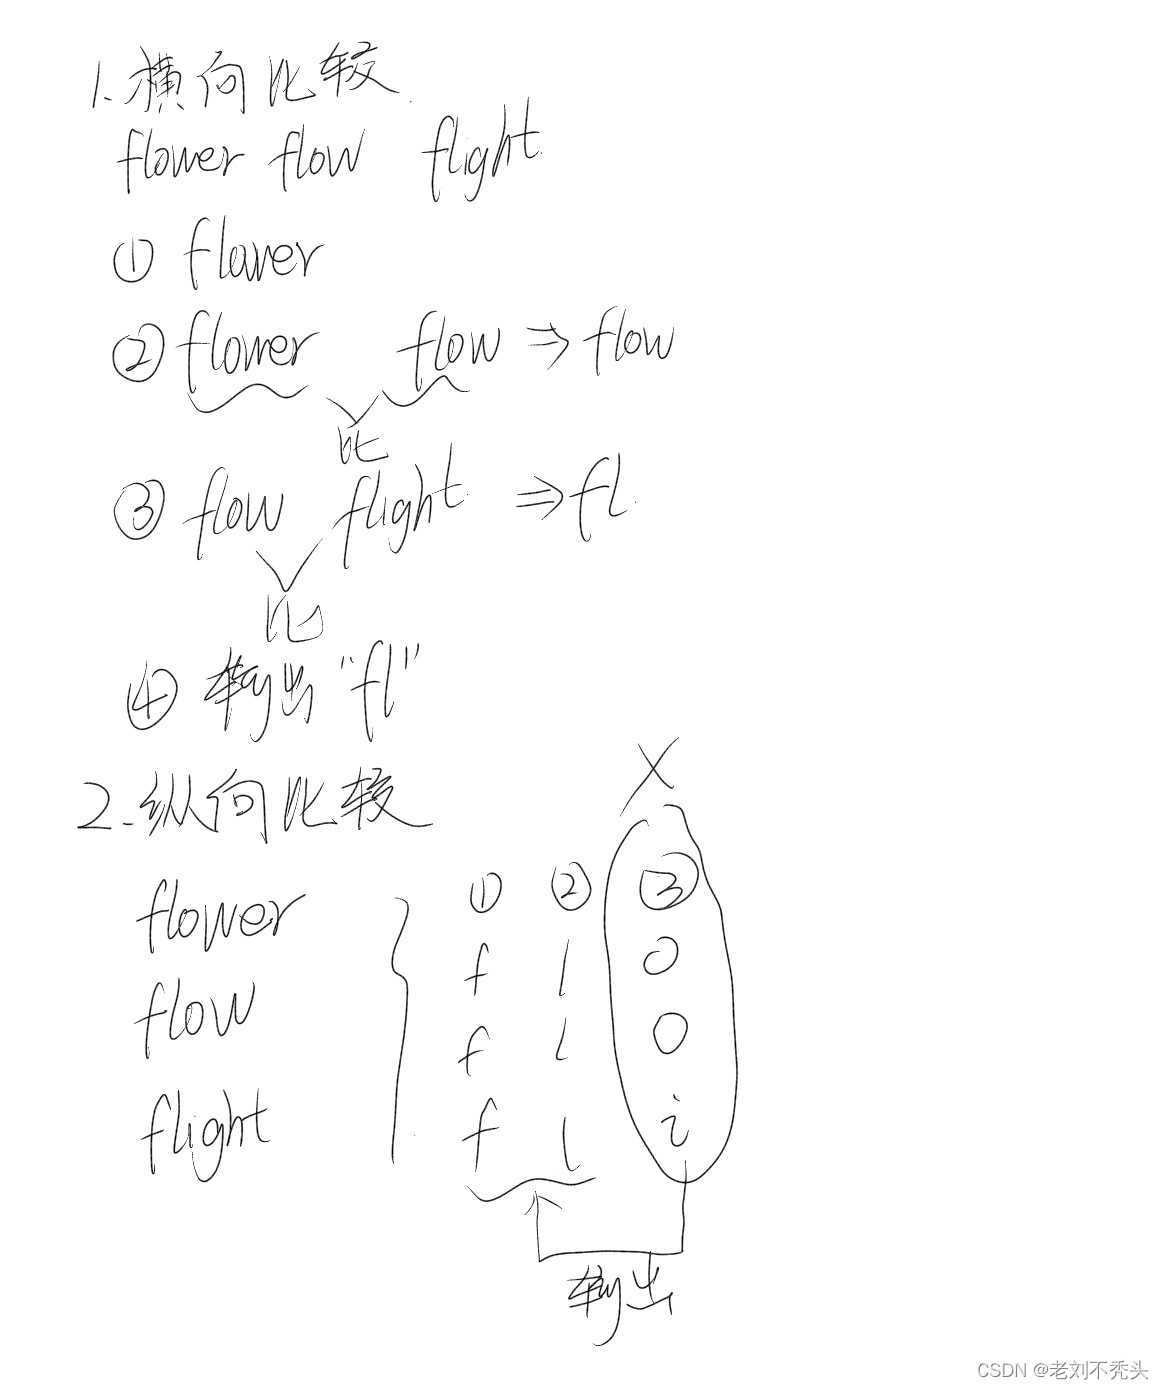 1.横向比较
flower flow flight
① flower
② flower flow ⇒ flow
比
③ flow flight ⇒ fl
比
④ 输出 "fl"
2.纵向比较
X
flower ① ② ③
f l o
flow
f l o
flight f l i
输出
CSDN @老刘不秃头